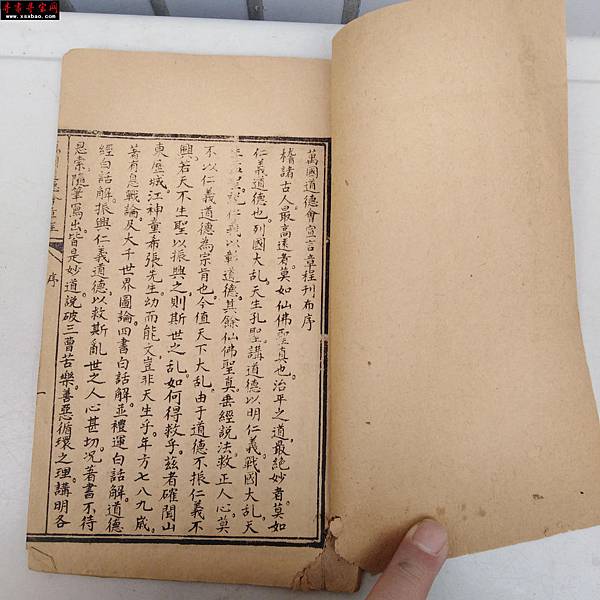 寻书寻宝网
www.xsxbao.com
萬國道德會宣言章程刊布序
稽諸古人。最高遠者。莫如仙佛聖真也。治平之道。最絶妙者。莫如
仁義道德也。列國大乱。天生孔聖講道德以明仁義。戰國大乱。天
說仁義以彰道德。其餘仙佛聖真。垂經説法。救正人心。莫
不以仁義道德為宗旨也。今值天下大乱。由于道德不振。仁義不
興。若天不生聖以振興之。則斯世之乱。如何得救乎。茲者確聞山
東歷城江神童希張先生。幼而能文。豈非天生乎。年方七八九歲。
著有息戰論。及大千世界圖論。四書白話解。並禮運白話解。道德
經白話解。振興仁義道德。以救斯亂世之人心甚切。况著書不待
思索。隨筆寫出。皆是妙道。說破三曹苦樂。善惡循環之理。講明各
序
一